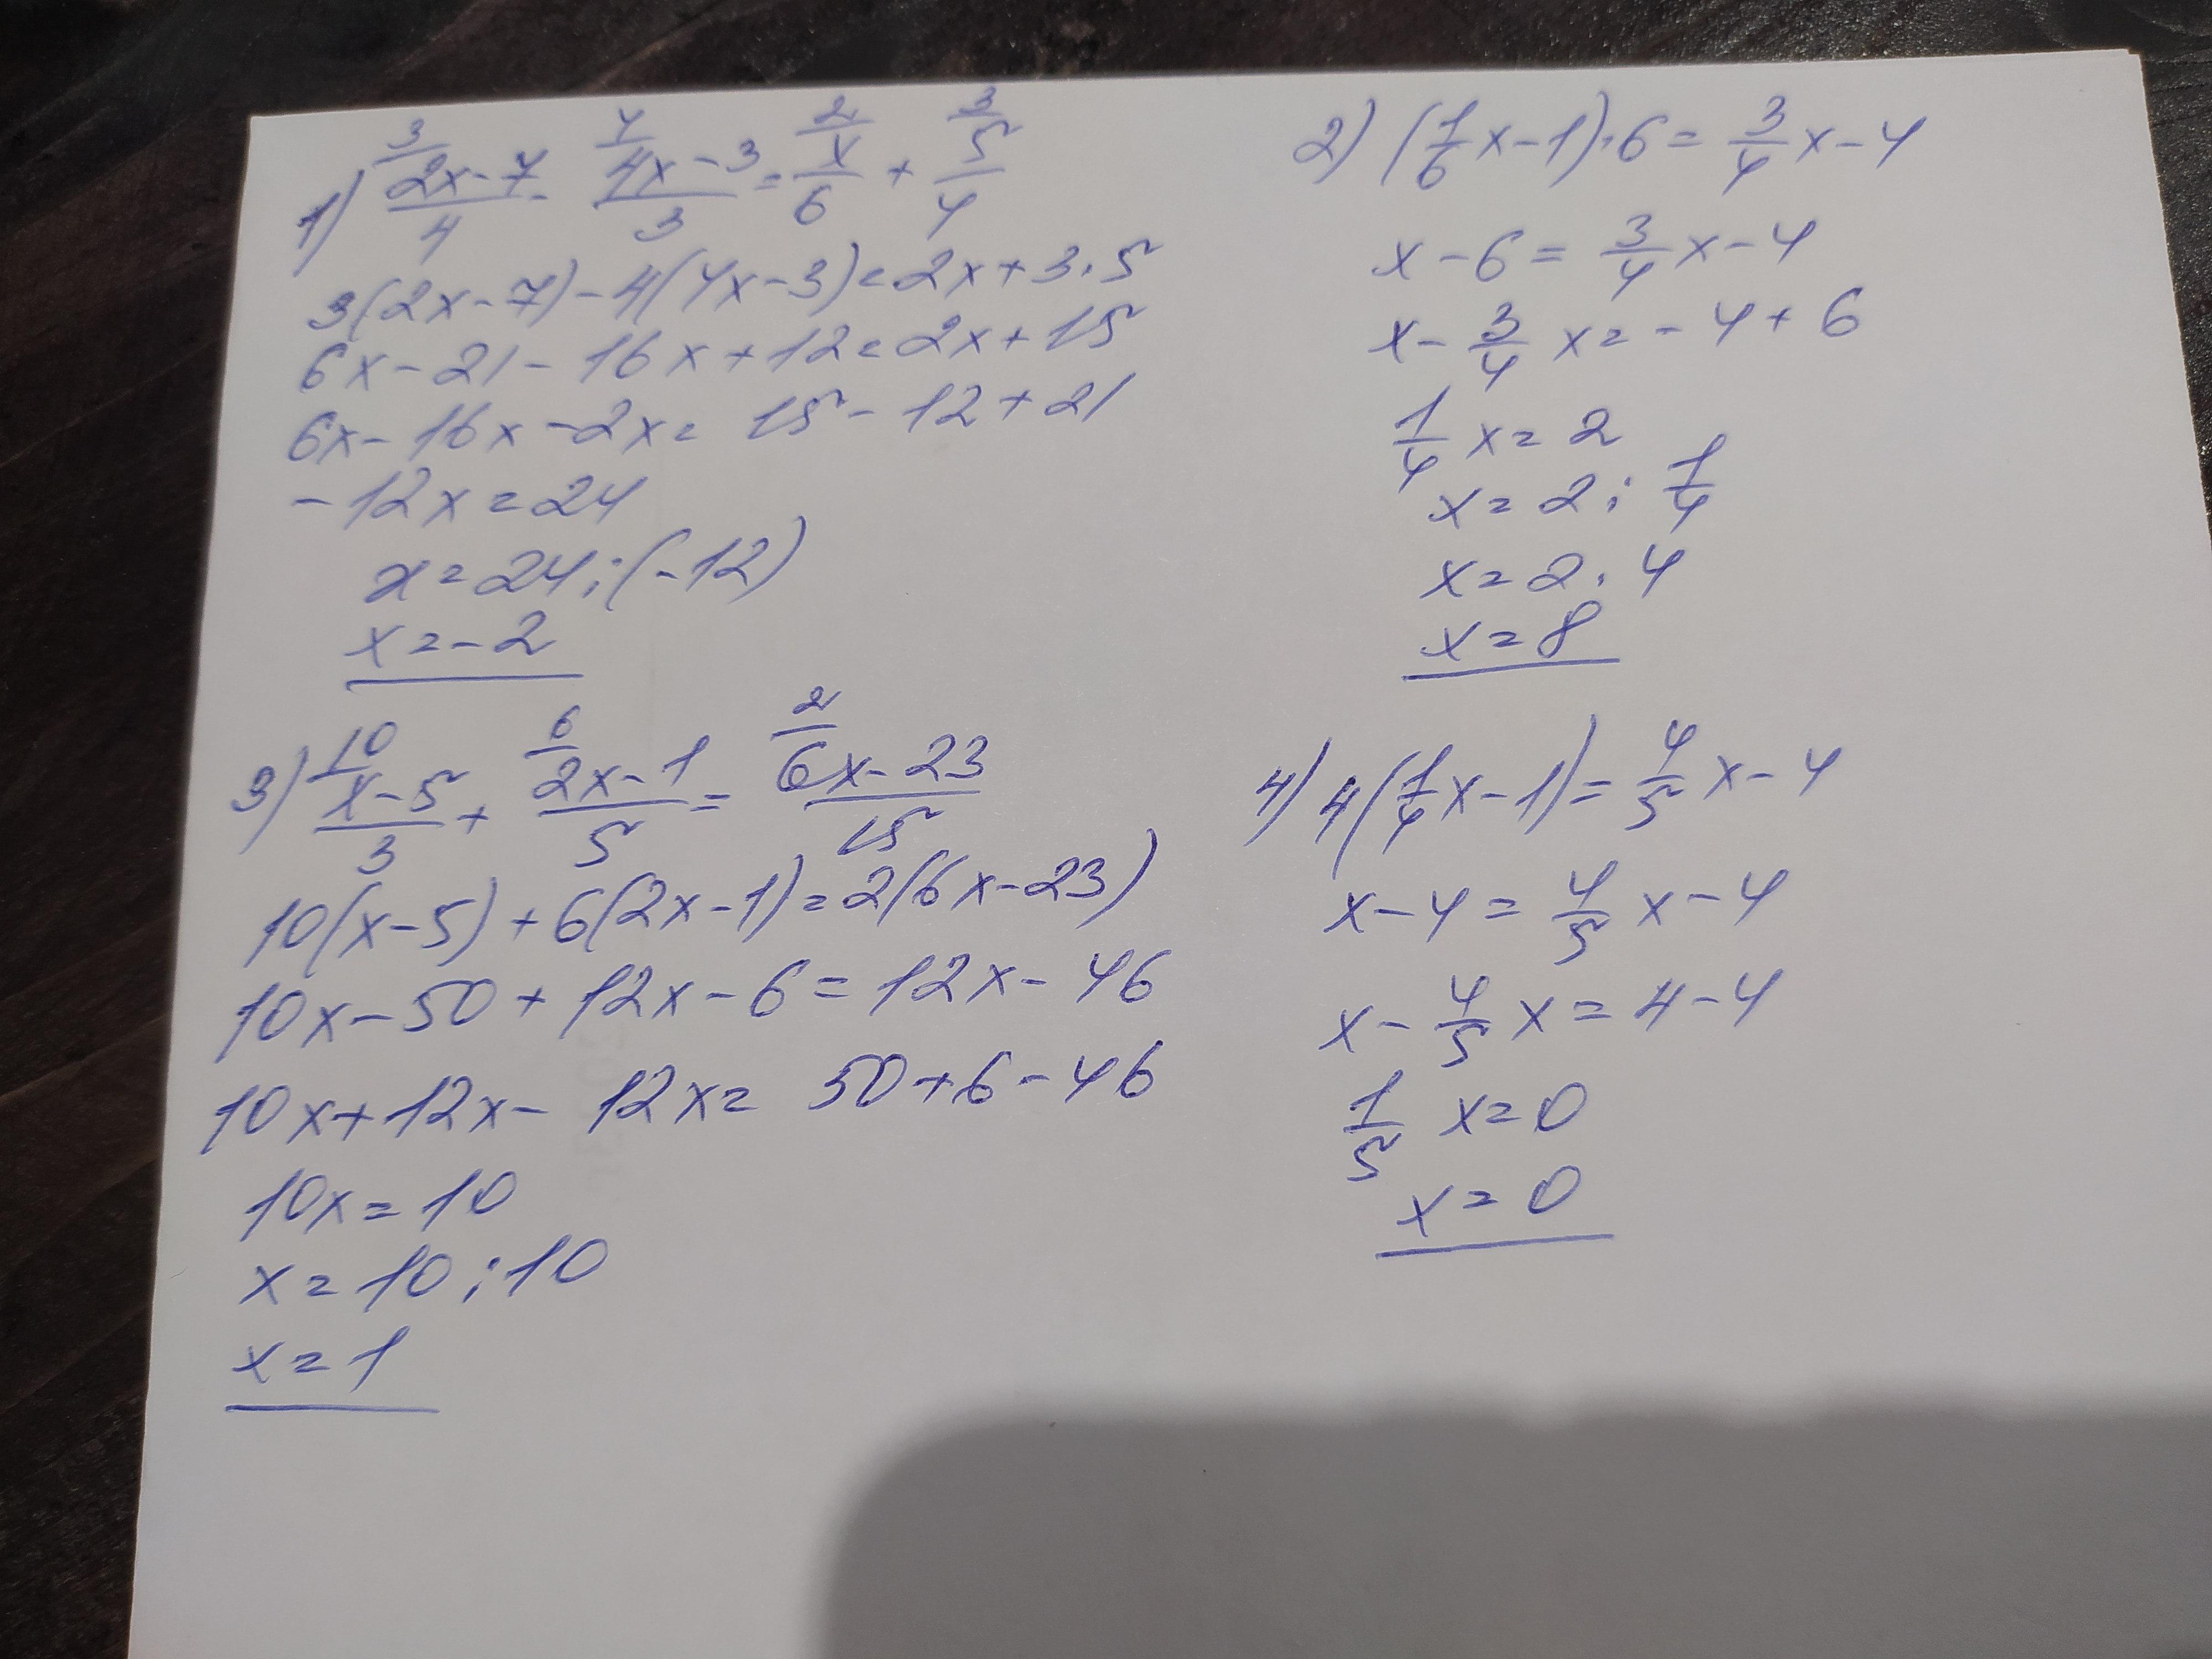 1) 3/ 4/ 2/ 3/
(2x-7)/4 - (4x-3)/3 = x/6 + 5/4
3(2x-7)-4(4x-3)=2x+3·5
6x-21-16x+12=2x+15
6x-16x-2x=15-12+21
-12x=24
x=24:(-12)
x=-2
2) (1/6 x-1)·6=3/4 x-4
x-6=3/4 x-4
x-3/4 x=-4+6
1/4 x=2
x=2:1/4
x=2·4
x=8
3) 10/ 6/ 2/
(x-5)/3 + (2x-1)/5 = (6x-23)/15
10(x-5)+6(2x-1)=2(6x-23)
10x-50+12x-6=12x-46
10x+12x-12x=50+6-46
10x=10
x=10:10
x=1
4) 4(1/4 x-1)=4/5 x-4
x-4=4/5 x-4
x-4/5 x=4-4
1/5 x=0
x=0